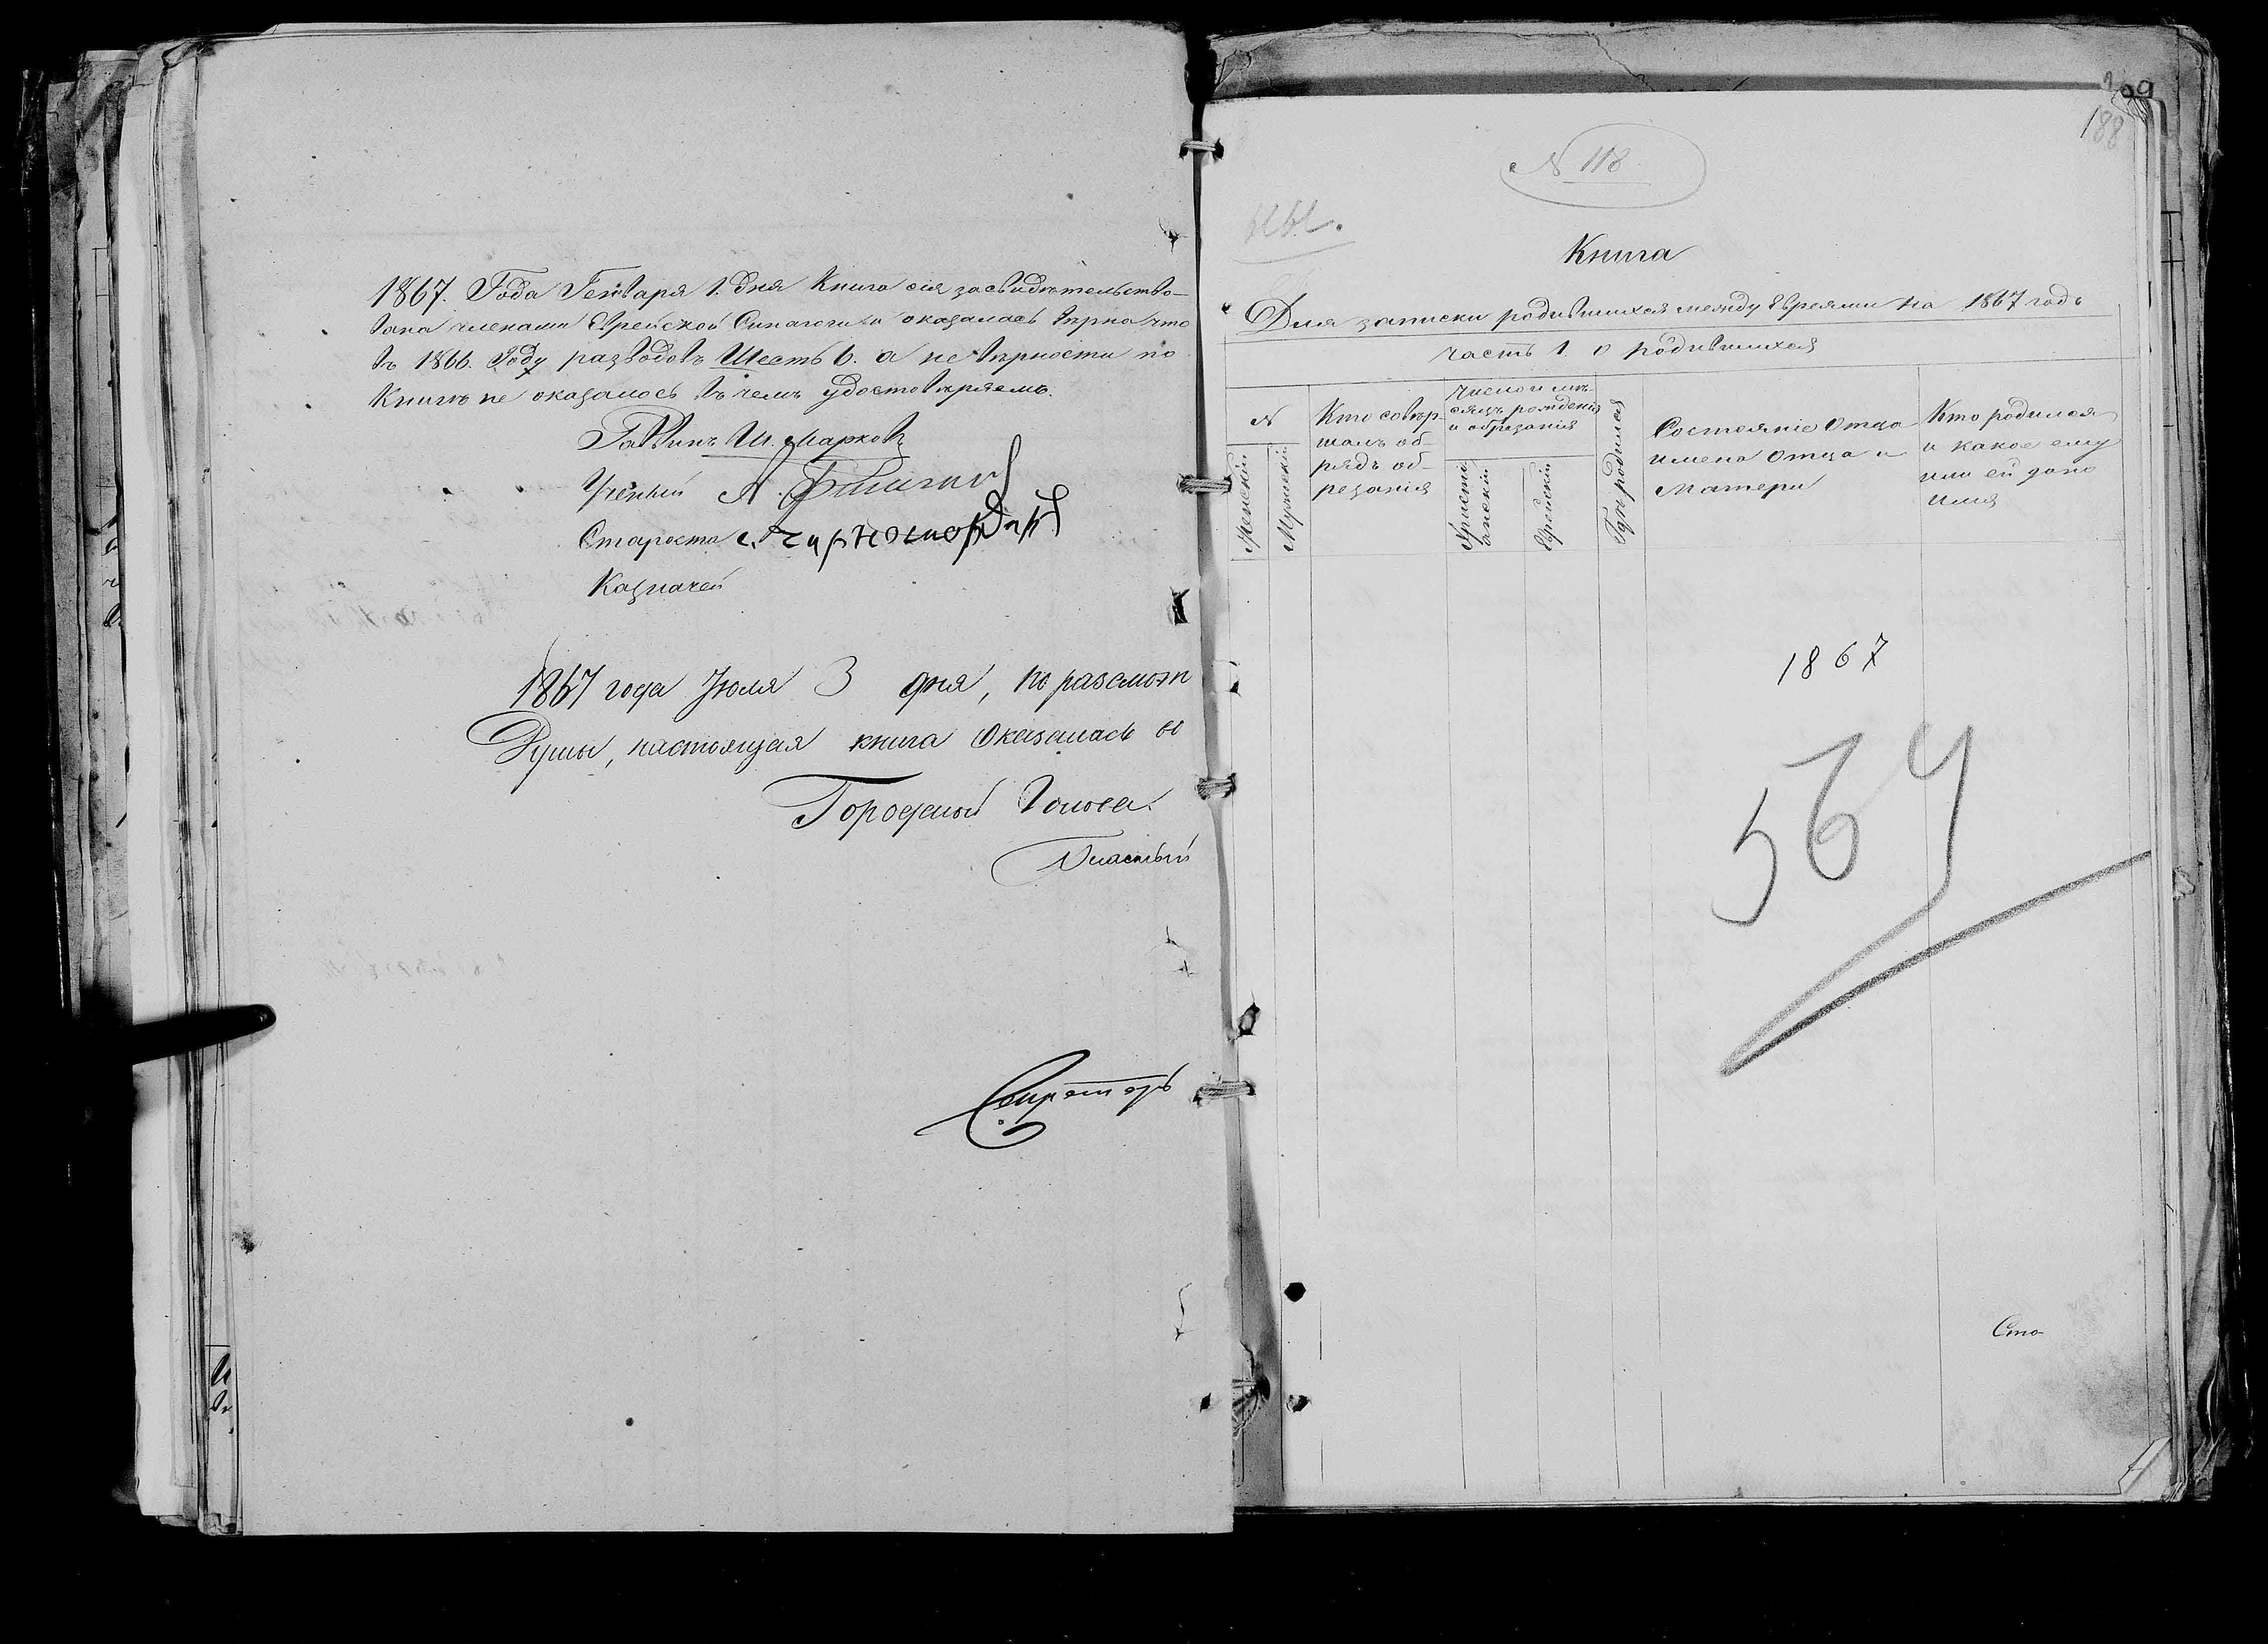 1867. Года Генваря 1. дня Книга сія засвидѣтельство-
вана членами Еврейской Синагоги и оказалась вѣрна что
въ 1866. Году разводовъ Шесть 6. а не вѣрности по
Книгѣ не оказалось въ чемъ удостовѣряемъ.
Раввинъ Ш. Марковъ
Ученый А.
Староста
Казначей
1867 года Іюля 3 дня, по разсмотр
Думы, настоящая книга оказалась
Городской Голова
Гласный
Секретарь
188
N 118
Книга
Для записки родившихся между Евреями на 1867 годъ
часть 1. о родившихся
N
Женскій
Мужескій
Кто совер-
шалъ об-
рядъ об-
резанія
Число и мѣ-
сяцъ рожденія
и обрезанія
Христі
анскій
Еврейскій
Гдѣ родился
Состояніе Отца
имена Отца и
Матери
Кто родился
и какое ему
или ей дано
Имя
1867
Сто-